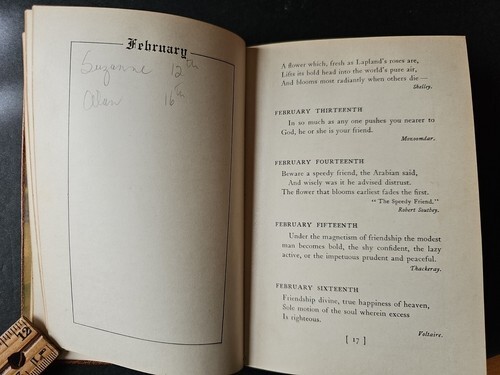 February
Suzanne 12th
Alan 16th
A flower which, fresh as Lapland's roses are,
Lifts its bold head into the world's pure air,
And blooms most radiantly when others die—
Shelley.
FEBRUARY THIRTEENTH
In so much as any one pushes you nearer to
God, he or she is your friend.
Mozoomdar.
FEBRUARY FOURTEENTH
Beware a speedy friend, the Arabian said,
And wisely was it he advised distrust.
The flower that blooms earliest fades the first.
"The Speedy Friend."
Robert Southey.
FEBRUARY FIFTEENTH
Under the magnetism of friendship the modest
man becomes bold, the shy confident, the lazy
active, or the impetuous prudent and peaceful.
Thackeray.
FEBRUARY SIXTEENTH
Friendship divine, true happiness of heaven,
Sole motion of the soul wherein excess
Is righteous.
Voltaire.
[ 17 ]
12